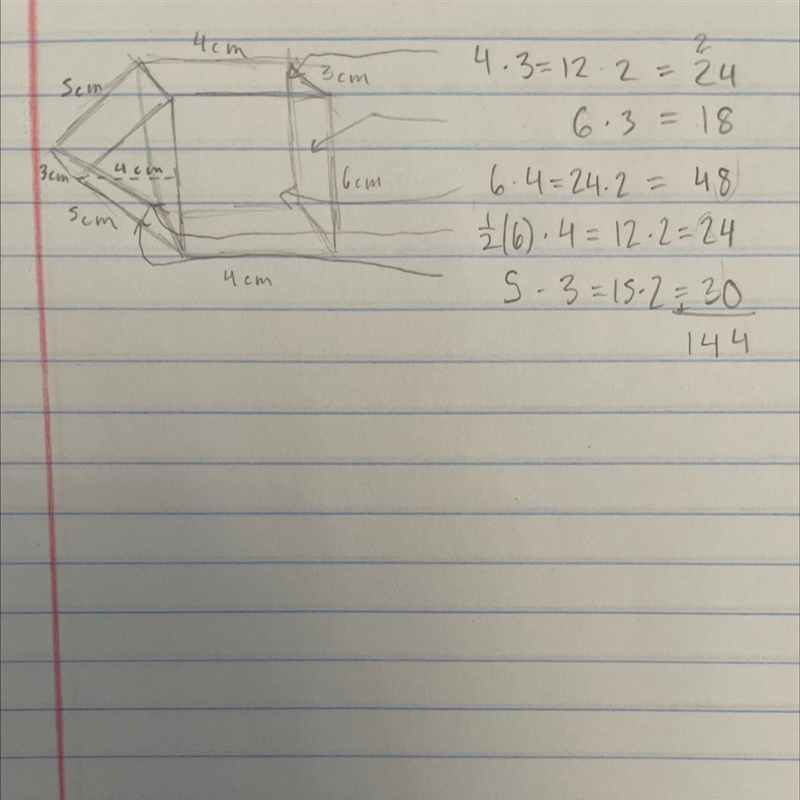 4cm
5cm
3cm
3cm
4cm
6cm
5cm
4cm
2
4 · 3 = 12 · 2 = 24
6 · 3 = 18
6 · 4 = 24 · 2 = 48
1/2(6) · 4 = 12 · 2 = 24
5 · 3 = 15 · 2 = 30
+
144